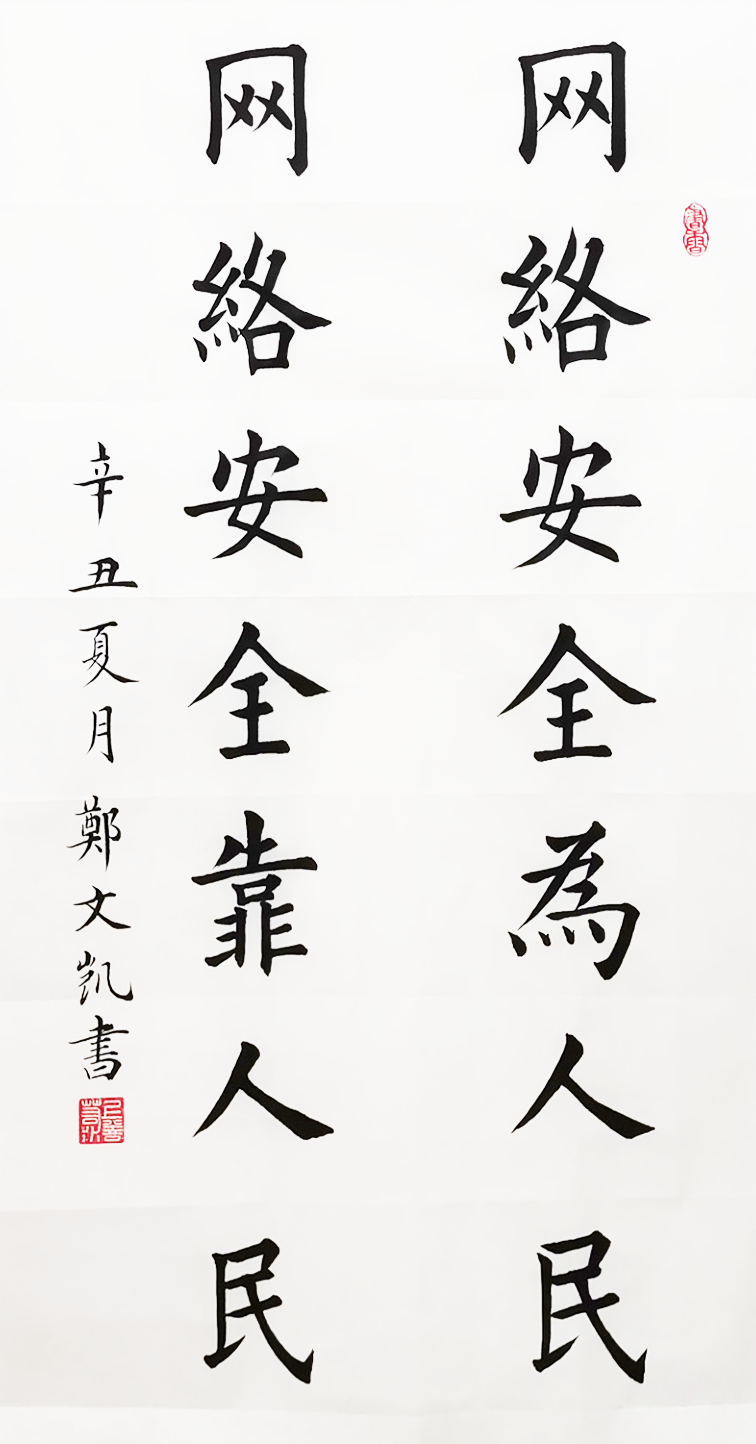 网絡安全為人民
网絡安全靠人民
辛丑夏月鄭文凱書